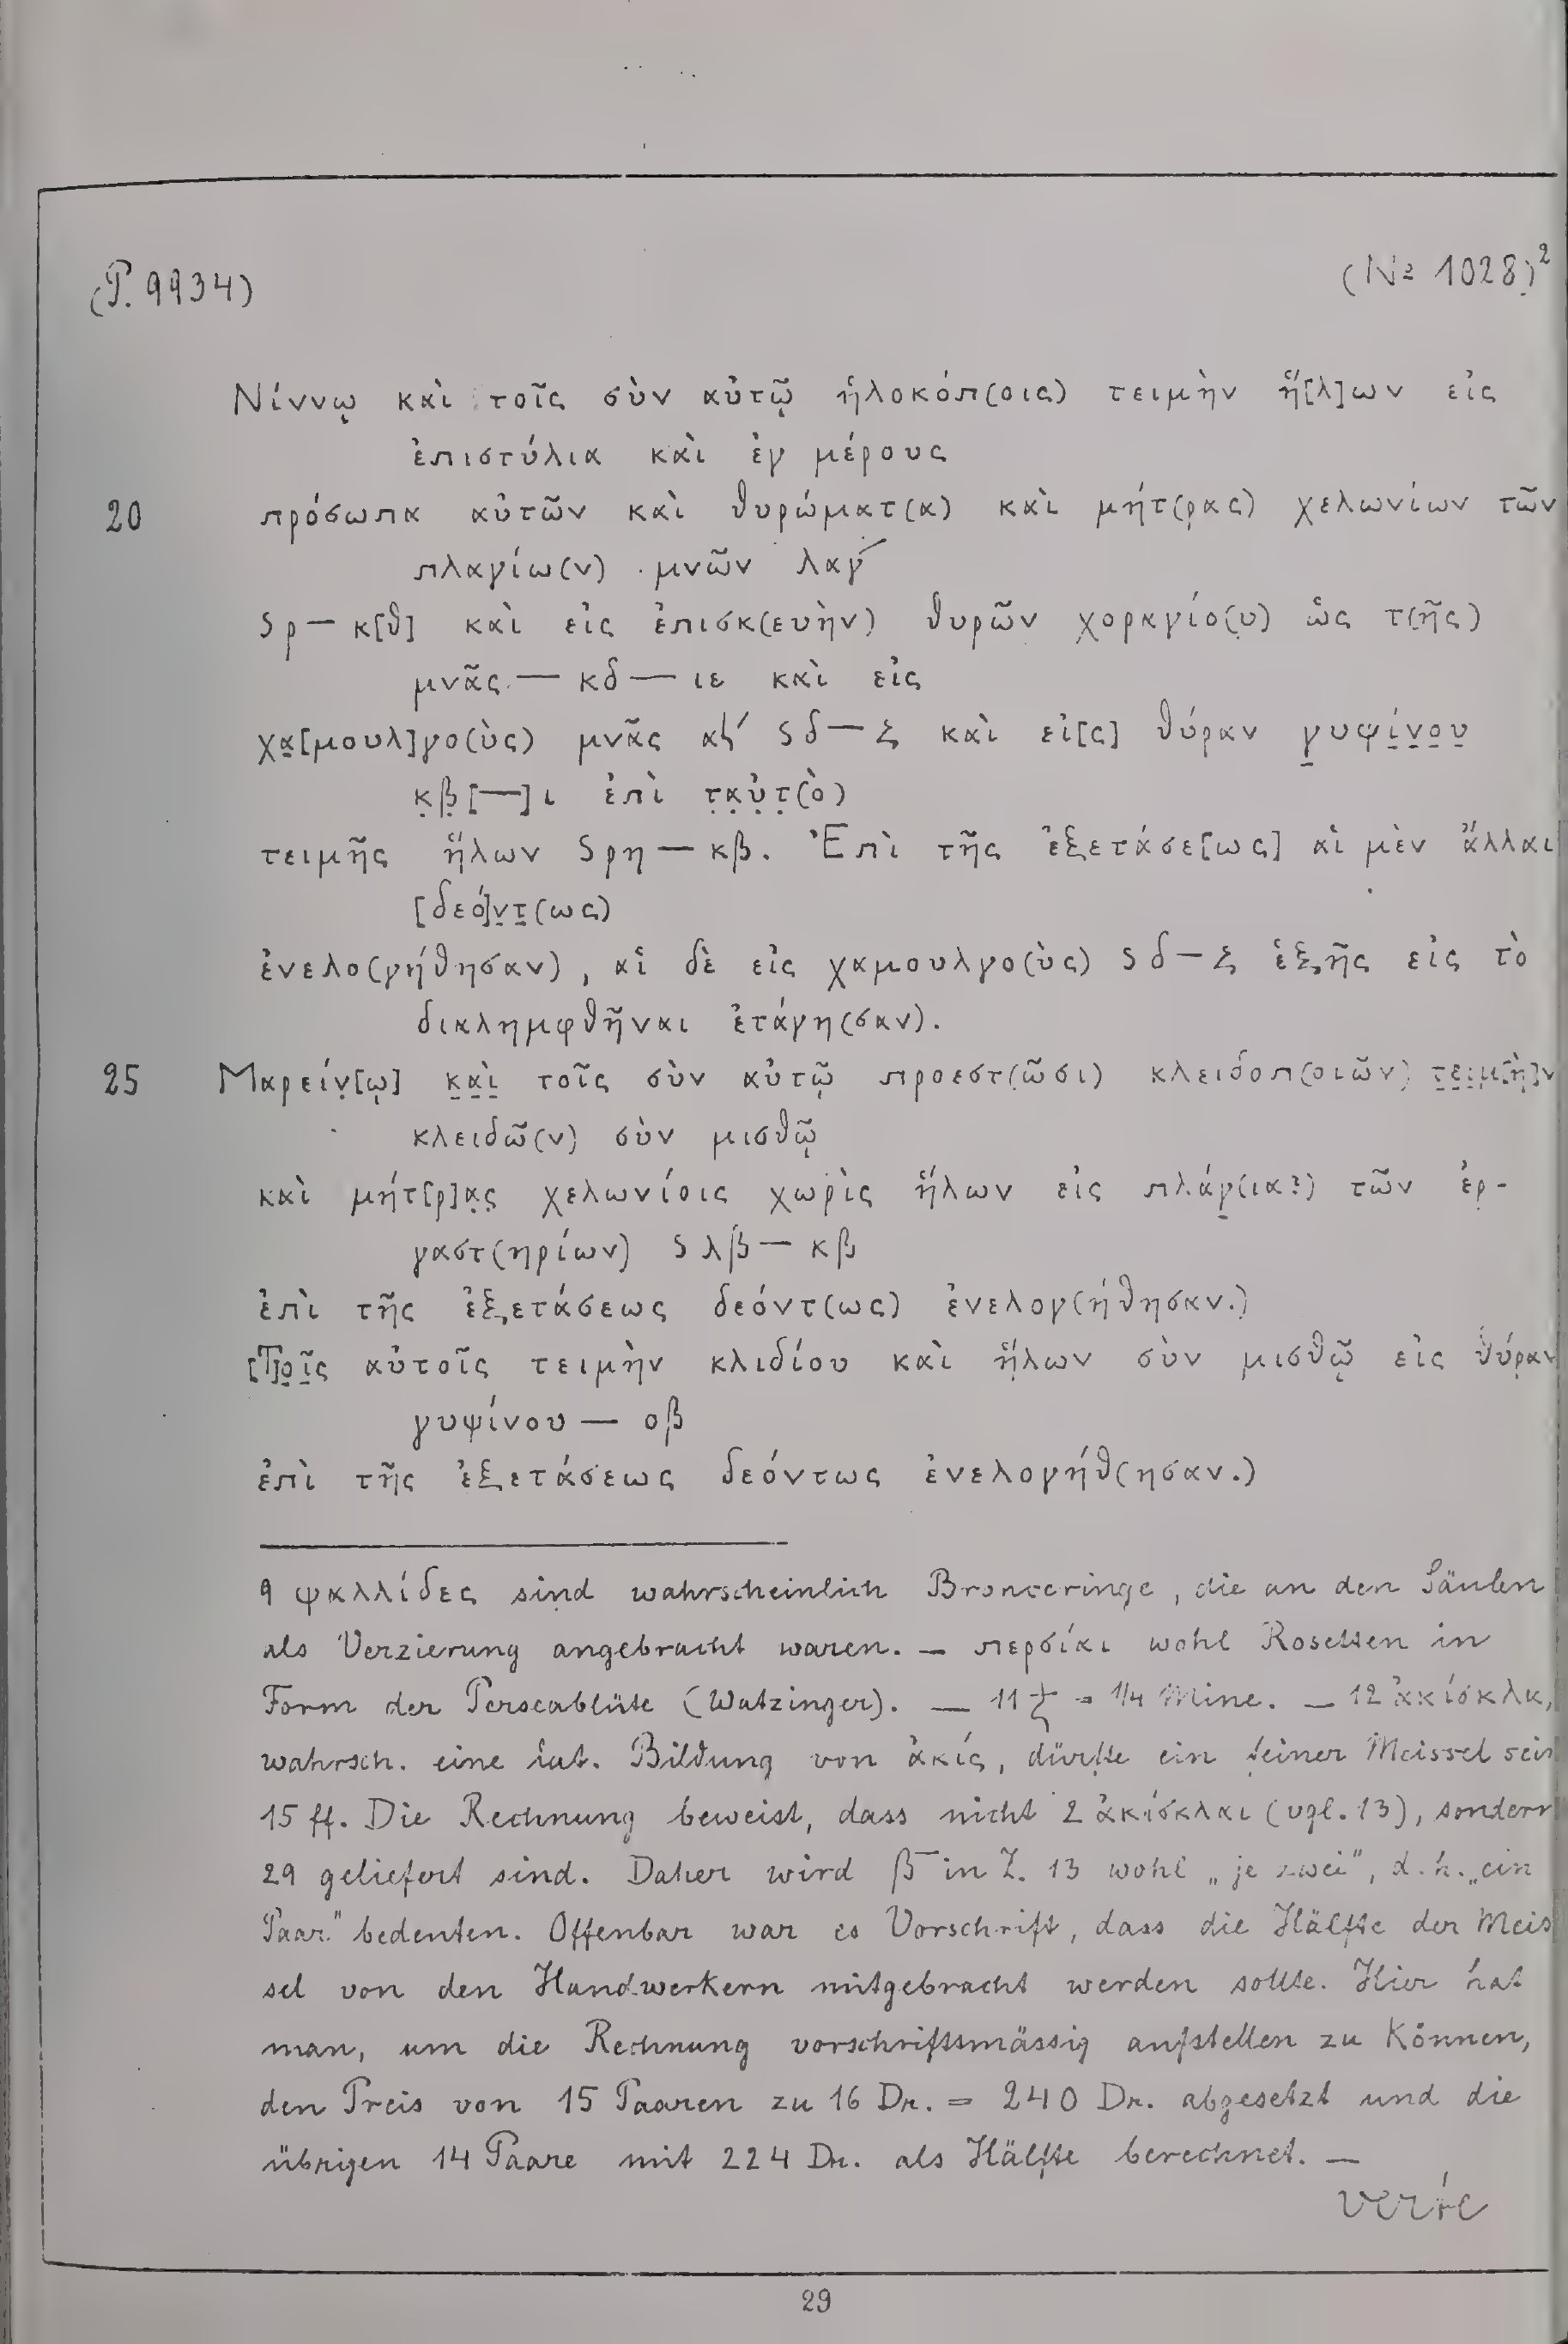 (P. 9934) (№ 1028)²
Νίννῳ καὶ τοῖς σὺν αὐτῷ ἡλοκόπ(οις) τειμὴν ἥ[λ]ων εἰς
ἐπιστύλια καὶ ἐγ μέρους
20 πρόσωπα αὐτῶν καὶ θυρώματ(α) καὶ μήτ(ρας) χελωνίων τῶν
πλαγίω(ν) μνῶν λαγ´
Sρ— κ[θ] καὶ εἰς ἐπισκ(ευὴν) θυρῶν χοραγίο(υ) ὡς τ(ῆς)
μνᾶς — κδ — ιε καὶ εἰς
χα̣[μουλ]γο(ὺς) μνᾶς Sδ— ξ καὶ εἰ[ς] θύραν γ̣υψί̣ν̣ο̣υ̣
κ̣β̣[—]ι ἐπὶ τ̣α̣ὐ̣τ̣(ὸ)
τειμῆς ἥλων Sρη — κβ. Ἐπὶ τῆς ἐξετάσε[ως] αἱ μὲν ἄλλαι
[δεό]ν̣τ̣(ως)
ἐνελο(γήθησαν), αἱ δὲ εἰς χαμουλγο(ὺς) Sδ—ξ ἑξῆς εἰς τὸ
διαλημφθῆναι ἐτάγη(σαν).
25 Μαρείν̣[ῳ] κ̣α̣ὶ̣ τοῖς σὺν αὐτῷ προεστ(ῶσι) κλειδοπ(οιῶν) τ̣ε̣ι̣μ̣[ὴ]ν
κλειδῶ(ν) σὺν μισθῷ
καὶ μήτ[ρ]α̣ς̣ χελωνίοις χωρὶς ἥλων εἰς πλάγ̣(ια?) τῶν ἐρ-
γαστ(ηρίων) Sλβ— κβ
ἐπὶ τῆς ἐξετάσεως δεόντ(ως) ἐνελογ(ήθησαν.)
[Τ]ο̣ῖ̣ς αὐτοῖς τειμὴν κλιδίου καὶ ἥλων σὺν μισθῷ εἰς θύραν
γυψίνου — οβ
ἐπὶ τῆς ἐξετάσεως δεόντως ἐνελογήθ(ησαν.)
9 ψαλλίδες sind wahrscheinlich Bronceringe, die an den Säulen
als Verzierung angebracht waren. — περσίαι wohl Rosetten in
Form der Perseablüte (Watzinger). — 11 = 1/4 Mine. — 12 ἀκίσκλα,
wahrsch. eine lat. Bildung von ἀκίς, dürfte ein feiner Meissel sein
15 ff. Die Rechnung beweist, dass nicht 2 ἀκίσκλαι (vgl. 13), sondern
29 geliefert sind. Daher wird β¯ in Z. 13 wohl „je zwei", d. h. „ein
Paar" bedeuten. Offenbar war es Vorschrift, dass die Hälfte der Meis
sel von den Handwerkern mitgebracht werden sollte. Hier hat
man, um die Rechnung vorschriftsmässig aufstellen zu Können,
den Preis von 15 Paaren zu 16 Dr. = 240 Dr. abgesetzt und die
übrigen 14 Paare mit 224 Dr. als Hälfte berechnet. —
29